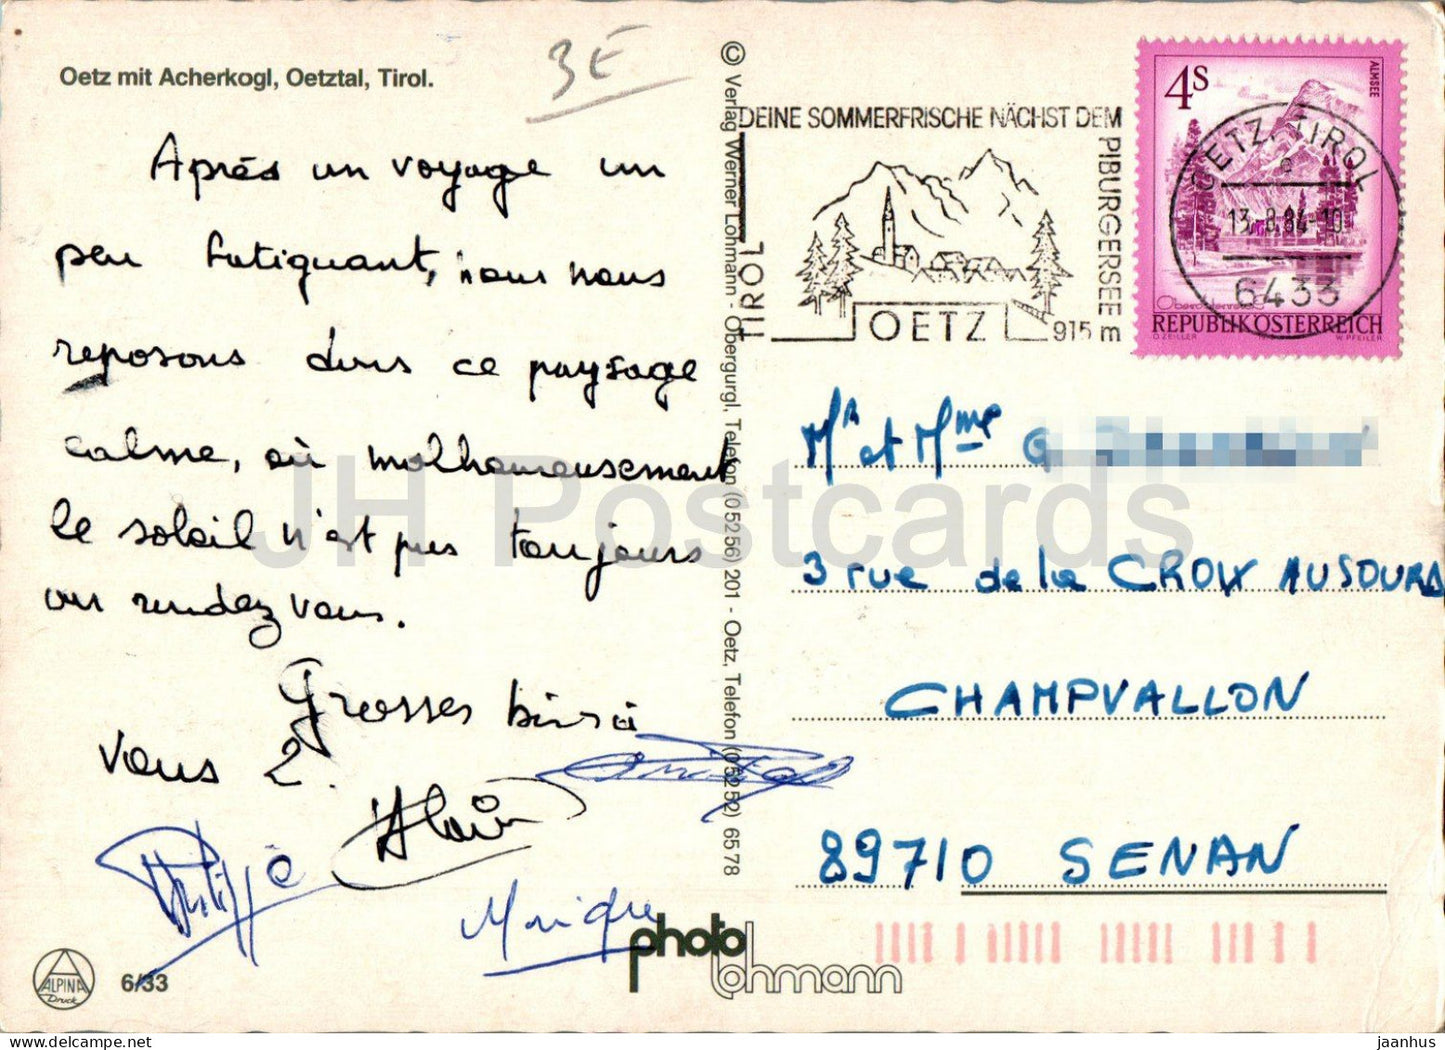 Oetz mit Acherkogl, Oetztal, Tirol.
3 E
Après un voyage un
peu fatiguant, nous nous
reposons dans ce paysage
calme, où malheureusement
le soleil n'est pas toujours
au rendez vous.
Grosses bises à
vous 2.
Alain
Philippe
Monique
ALPINA
Druck
6/33
© Verlag Werner Lohmann - Obergurgl, Telefon (05256) 201 - Oetz, Telefon (05252) 6578
photo
lohmann
DEINE SOMMERFRISCHE NÄCHST DEM
PIBURGERSEE
915 m
TIROL
OETZ
4S
ALMSEE
Oberösterreich
REPUBLIK ÖSTERREICH
O.ZEILER
W.PFEILER
OETZ, TIROL
e
13.8.84-10
6433
Mr et Mme G
3 rue de la CROIX AUSOURD
CHAMPVALLON
89710 SENAN
JH Postcards
jaanhus @ delcampe.net